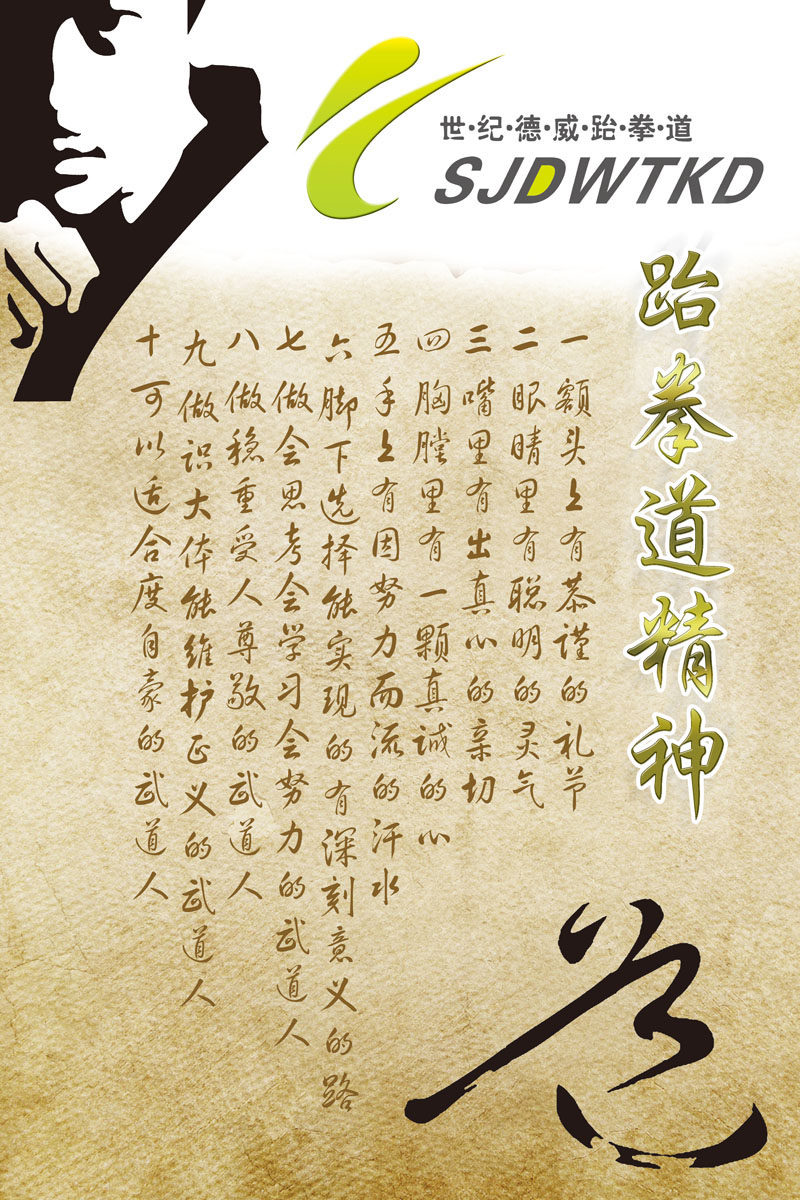 世·纪·德·威·跆·拳·道
SJDWTKD
跆拳道精神
一额头上有恭谨的礼节
二眼睛里有聪明的灵气
三嘴里有出真心的亲切
四胸膛里有一颗真诚的心
五手上有因努力而流的汗水
六脚下选择能实现的有深刻意义的路
七做会思考会学习会努力的武道人
八做稳重受人尊敬的武道人
九做识大体能维护正义的武道人
十可以适合度自豪的武道人
道